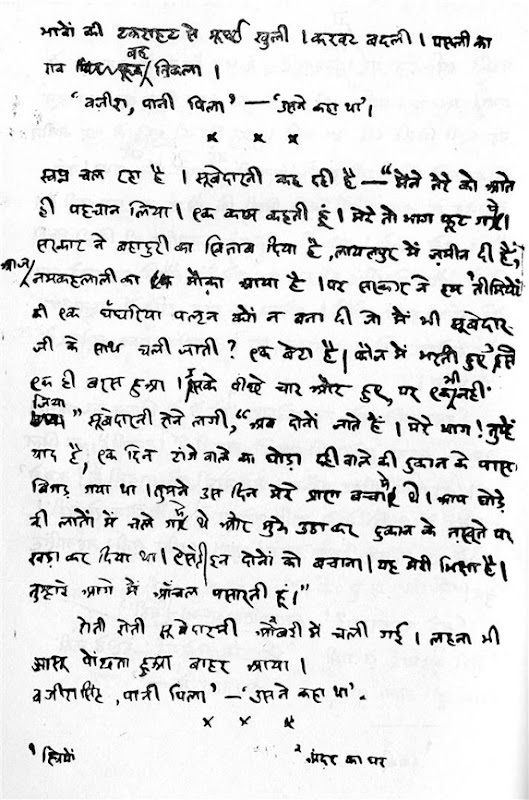 भावों की टकराहट से मूर्च्छा खुली । करवट बदली । पसली का
घाव बह निकला ।
'वज़ीरा, पानी पिला' — 'उसने कहा था' ।
× × ×
स्वप्न चल रहा है । सूबेदारनी कह रही है — "मैंने तेरे को आते
ही पहचान लिया । एक काम कहती हूं । मेरे तो भाग फूट गये ।
सरकार ने बहादुरी का ख़िताब दिया है, लायलपुर में ज़मीन दी है,
आज नमकहलाली का मौका आया है । पर सरकार ने हम तीमियों¹
की एक घंघरिया पल्टन क्यों न बना दी जो मैं भी सूबेदार
जी के साथ चली जाती ? एक बेटा है । फौज में भरती हुए इसे
एक ही बरस हुआ । इसके पीछे चार और हुए, पर एक भी नहीं
जिया " सूबेदारनी रोने लगी, "अब दोनों जाते हैं । मेरे भाग ! तुम्हें
याद है, एक दिन टांगे वाले का घोड़ा दही वाले की दुकान के पास
बिगड़ गया था । तुमने उस दिन मेरे प्राण बचाये थे । आप घोड़े
की लातों में चले गये थे और मुझे उठाकर दुकान के तख़्ते पर
खड़ा कर दिया था । ऐसे ही इन दोनों को बचाना । यह मेरी भिक्षा है ।
तुम्हारे आगे मैं आँचल पसारती हूं ।"
रोती रोती सूबेदारनी ओबरी² में चली गई । लहना भी
आंसू पोंछता हुआ बाहर आया ।
वज़ीरासिंह, पानी पिला' — 'उसने कहा था' .
× × ×
¹ स्त्रियों ² अंदर का घर